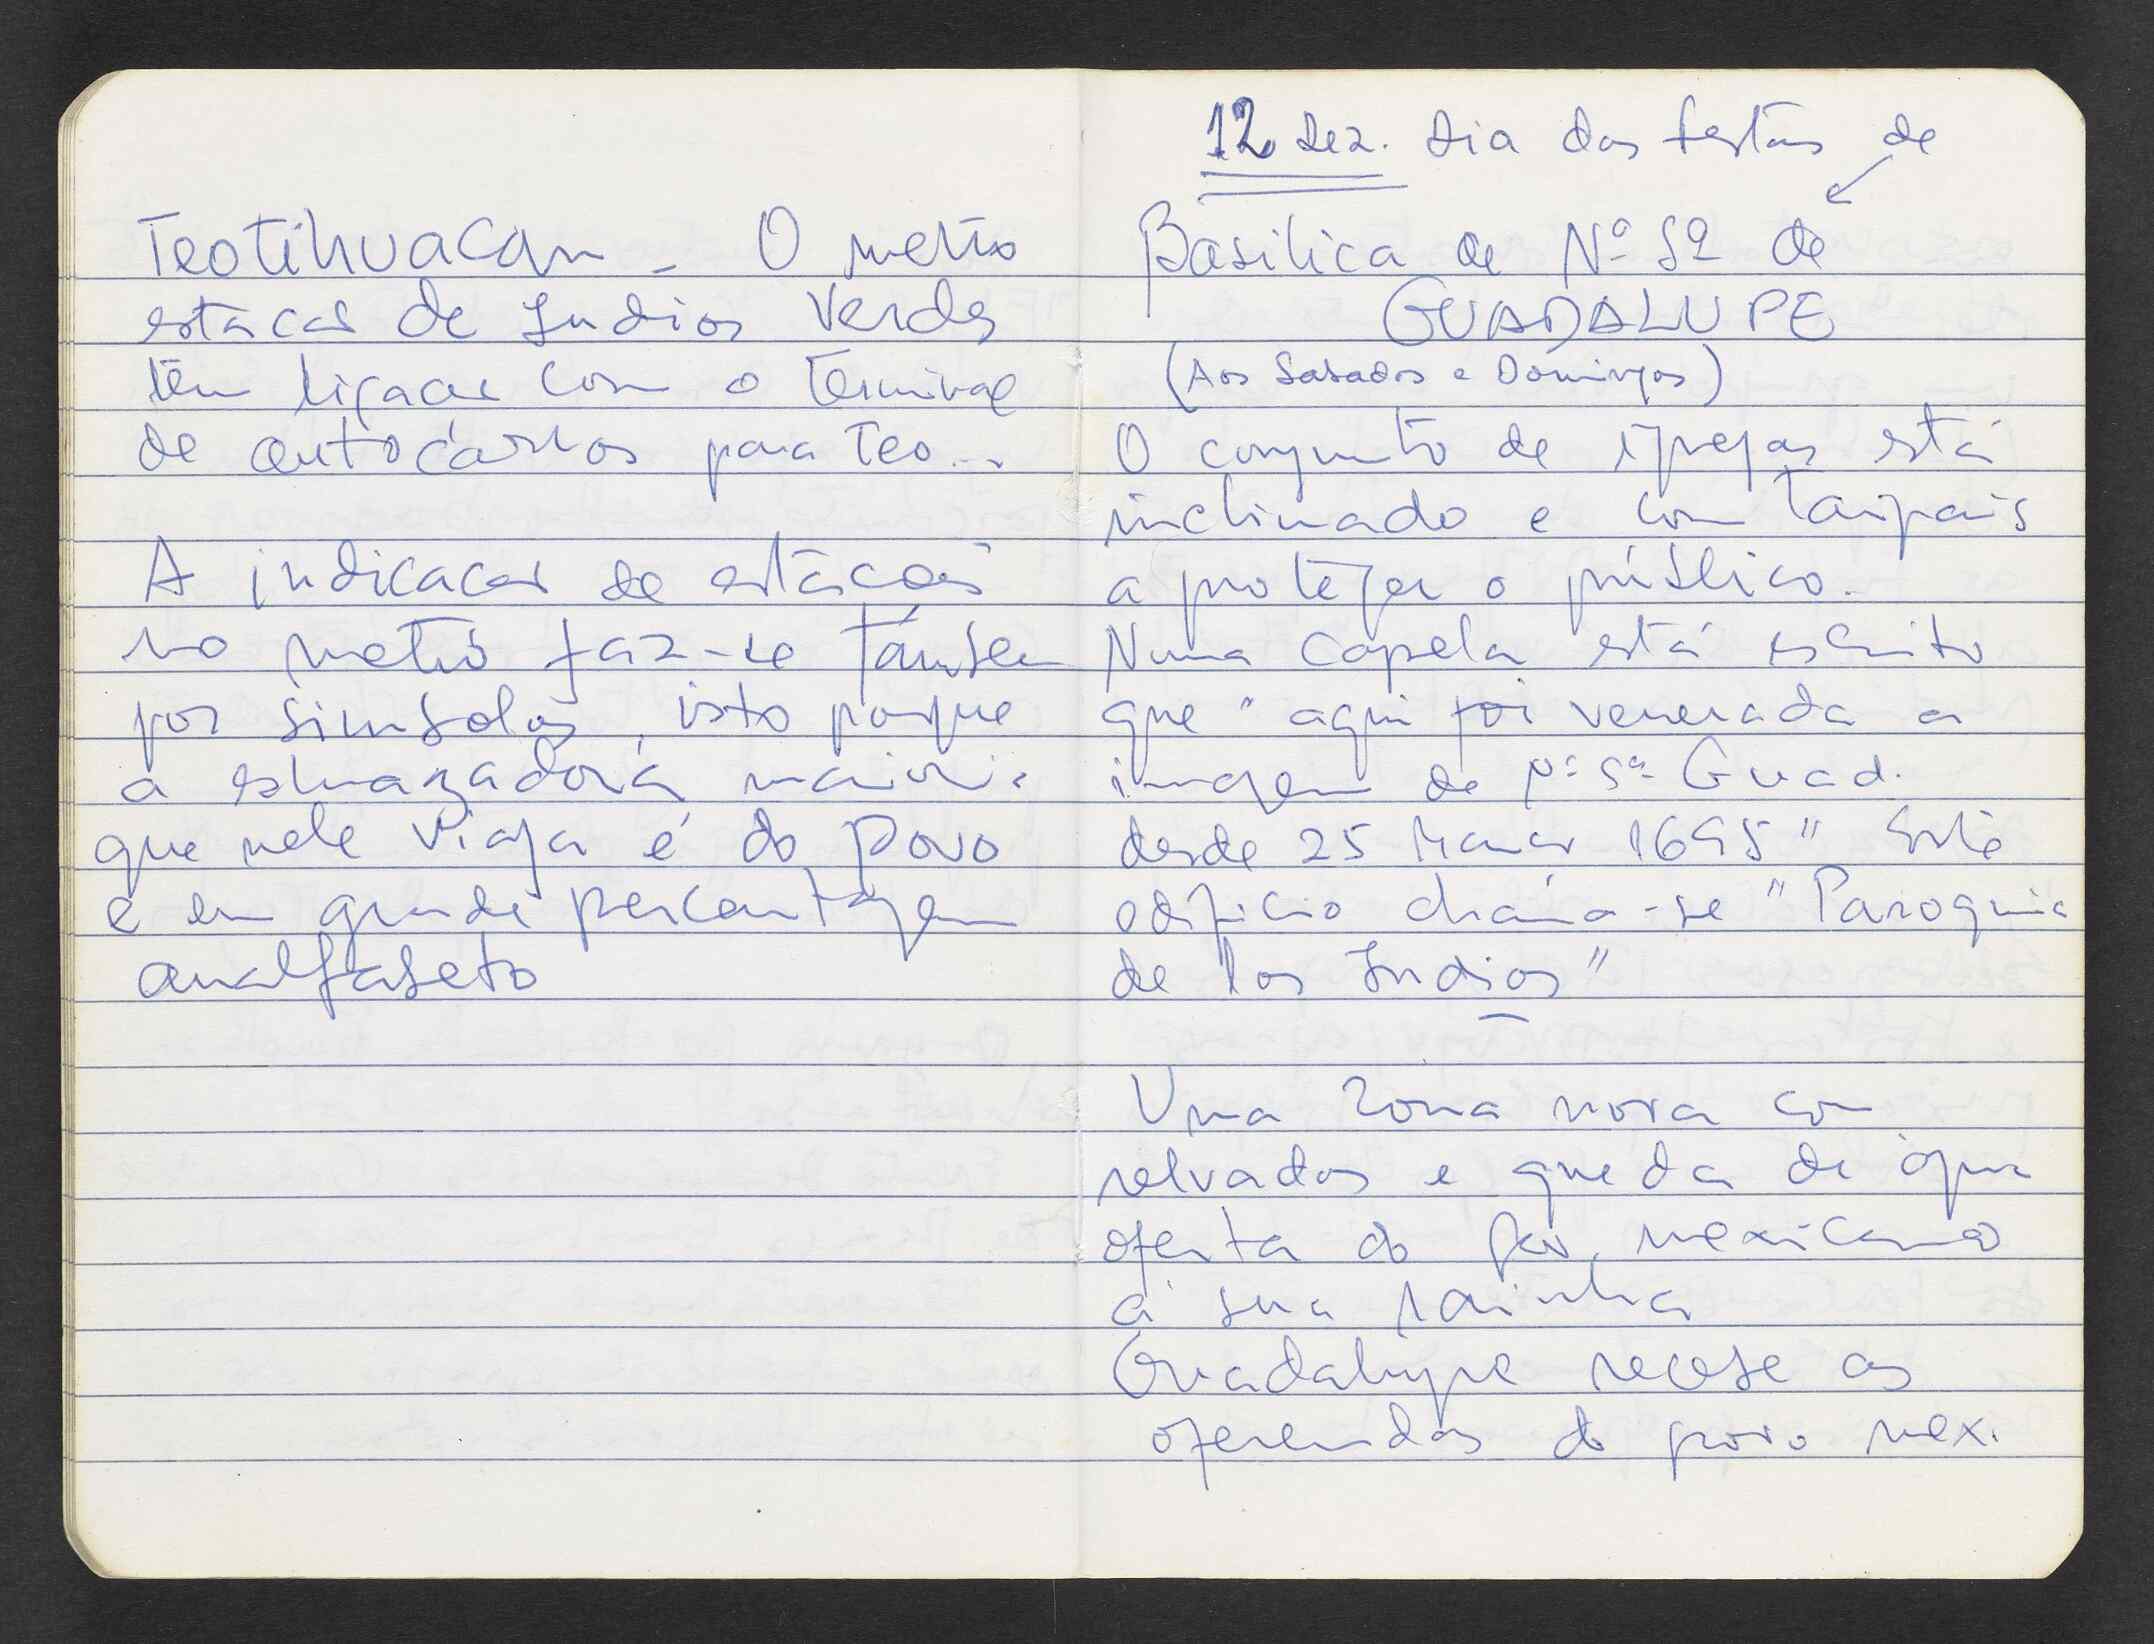 Teotihuacan - O metro
estação de Indios Verdes
têm ligação com o terminal
de autocarros para Teo...
A indicação de estações
no metro faz-se também
por simbolos, isto porque
a esmagadora maioria
que nele viaja é do povo
e em grande percentagem
analfabeto
12 Dez. Dia das festas de
Basilica de Nª Sª de
GUADALUPE
(Aos Sabados e Domingos)
O conjunto de igrejas está
inclinado e com taipais
a proteger o público.
Numa capela está escrito
que "aqui foi venerada a
imagem de Nª Sª Guad.
desde 25 Março 1695" Este
edificio chama-se "Paroquia
de los Indios"
Uma zona nova com
relvados e queda de água
oferta do Gov. mexicano
á sua rainha
Guadalupe recebe as
oferendas do povo mex.